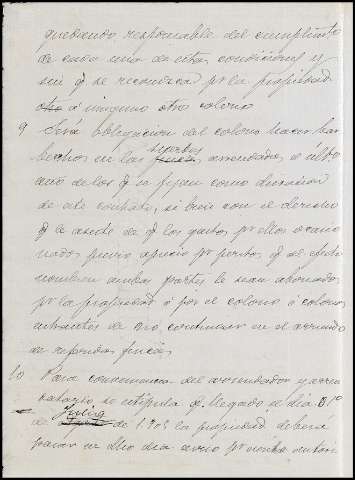 quedando responsable del cumplimto
de cada una de estas condiciones y
sin q se reconozca por la propiedad
otro a ninguno otro colono
9 Será obligacion del colono hacer bar
suertes
bechos en las fincas arrendadas, el último
año de los q se fijan como duracion
de este contrato, si bien con el derecho
q le asiste de q los gastos por ellos ocasio
nados previo aprecio por peritos q al efecto
nombren ambas partes le sean abonados
por la propiedad ó por el colono ó colonos
entrantes de no continuar en el arriendo
de referidas fincas
10 Para conveniencia del arrendador y arren
datario se estipula q llegado el dia 1º
Julio
de de 1905 la propiedad deberá
pasar en dho dia aviso por